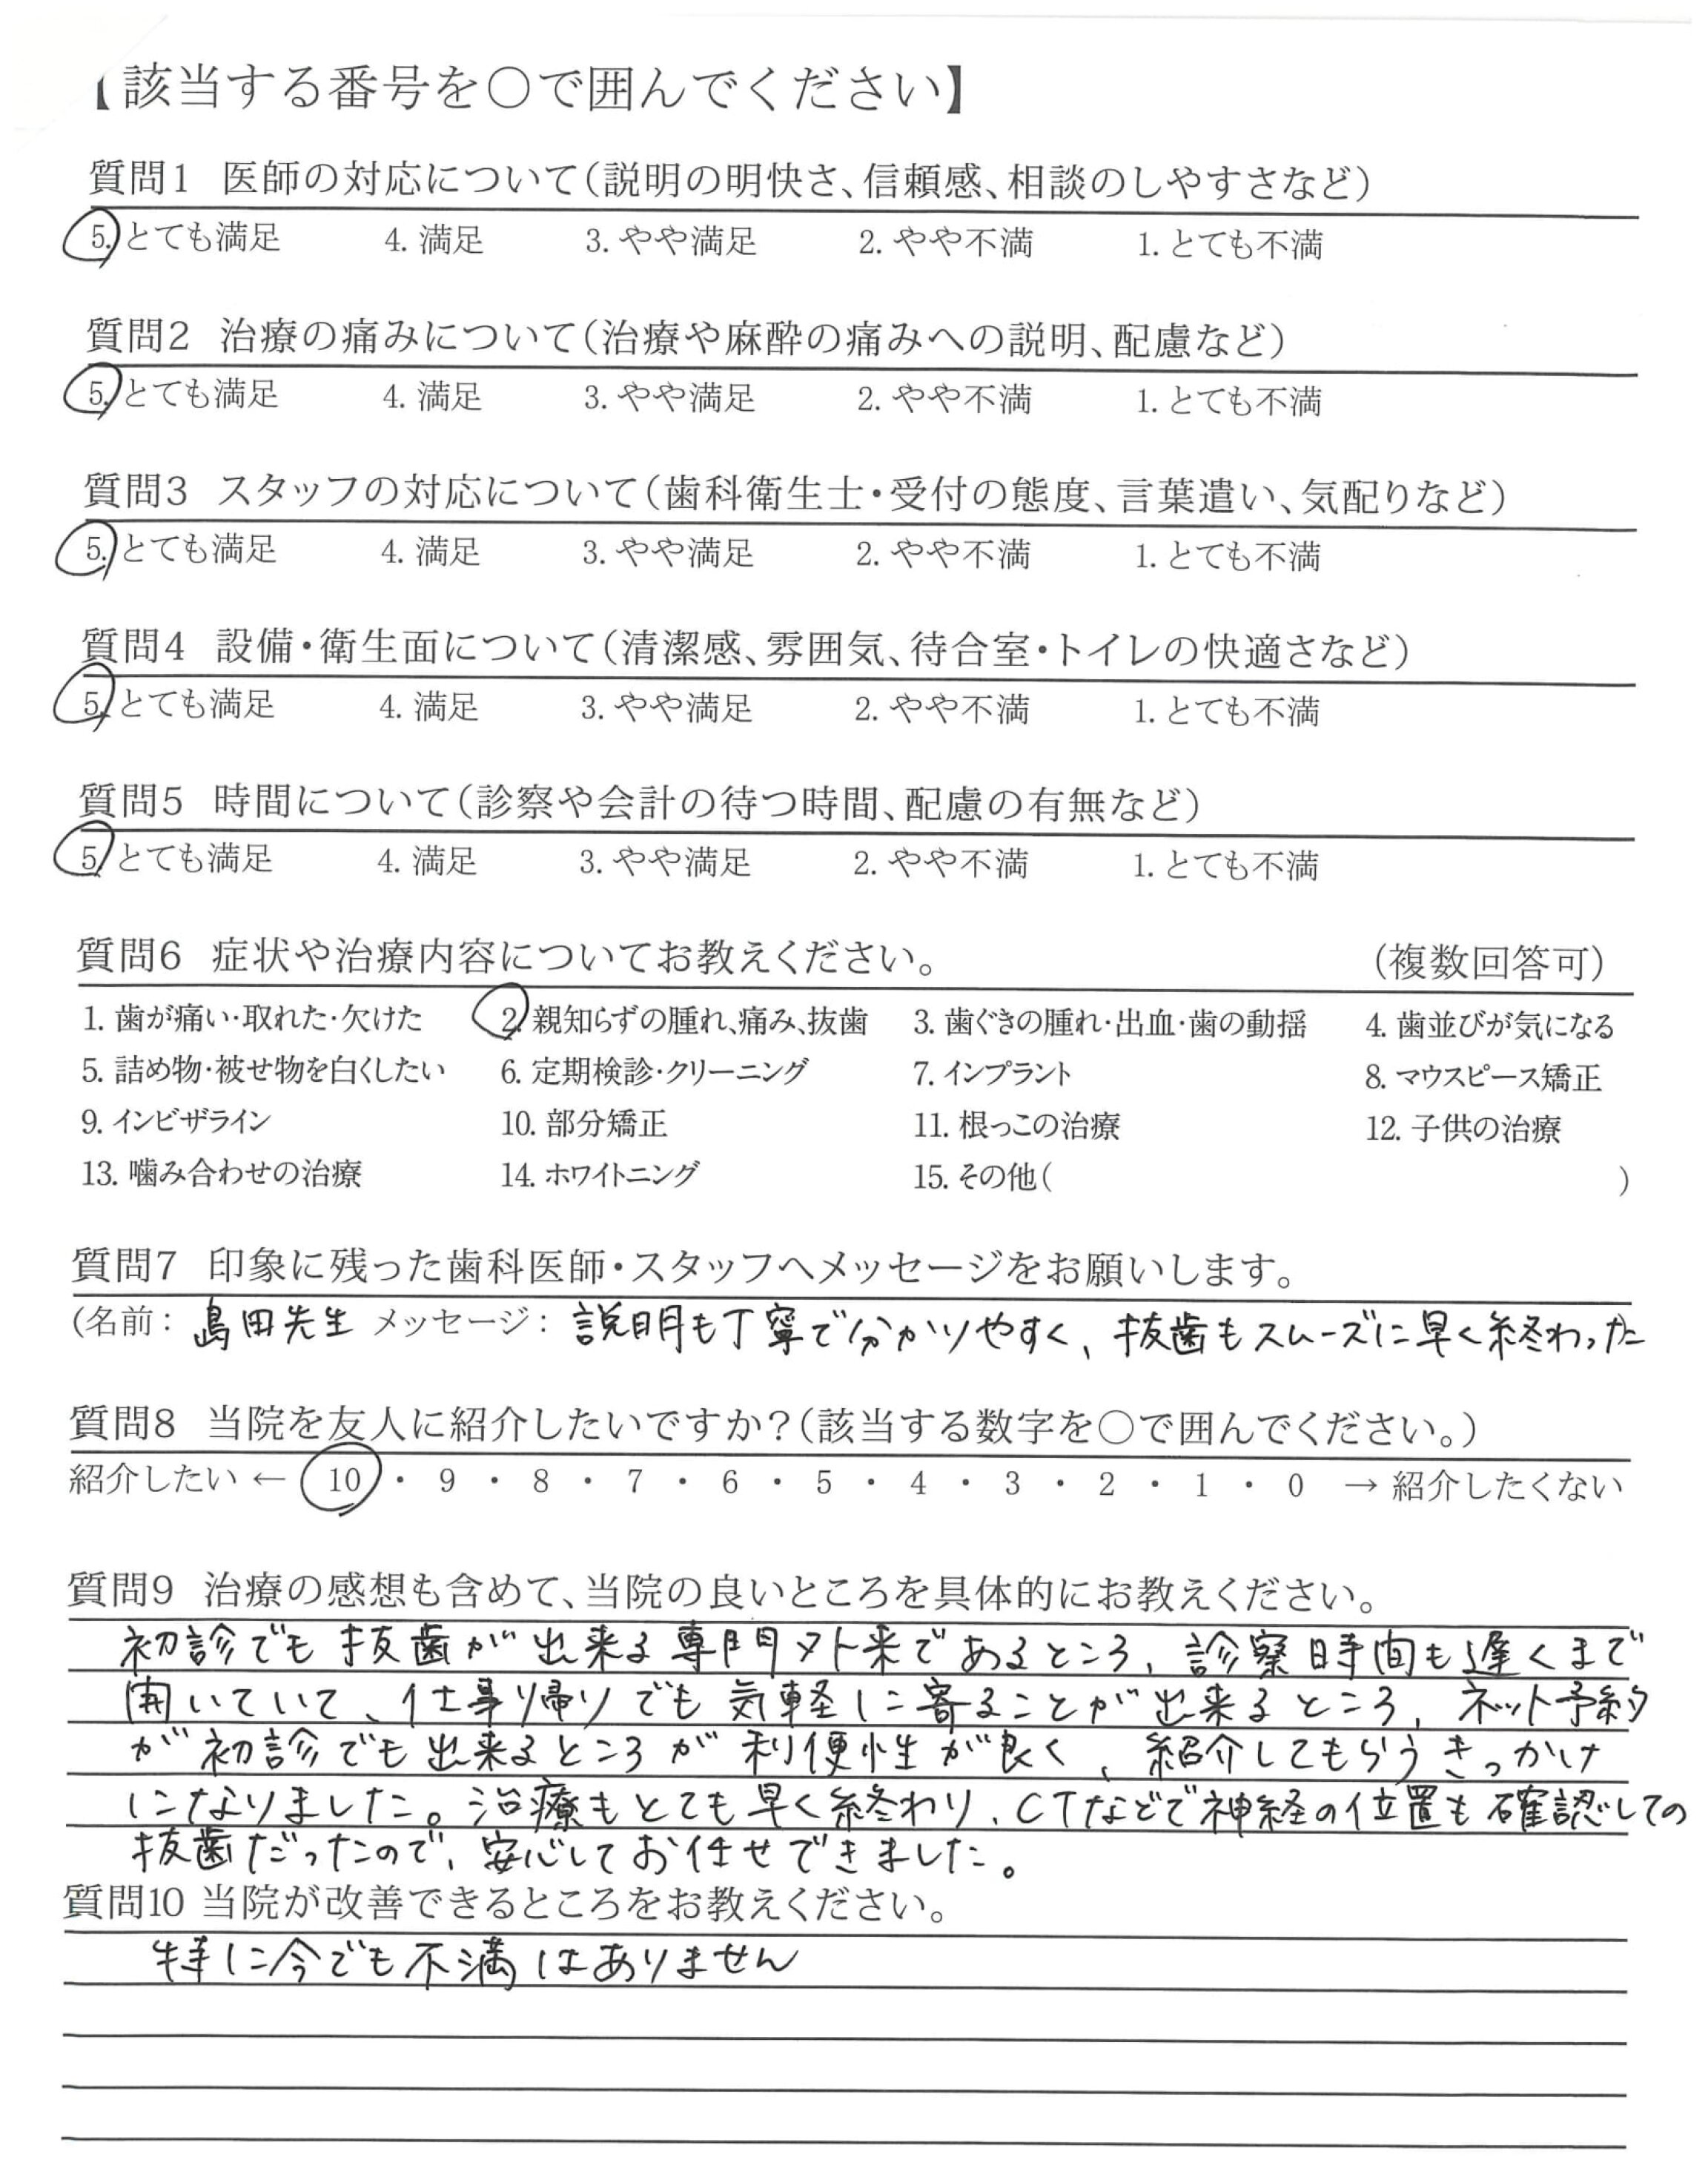 【該当する番号を〇で囲んでください】
質問1 医師の対応について(説明の明快さ、信頼感、相談のしやすさなど)
5. とても満足 4. 満足 3. やや満足 2. やや不満 1. とても不満
質問2 治療の痛みについて(治療や麻酔の痛みへの説明、配慮など)
5. とても満足 4. 満足 3. やや満足 2. やや不満 1. とても不満
質問3 スタッフの対応について(歯科衛生士・受付の態度、言葉遣い、気配りなど)
5. とても満足 4. 満足 3. やや満足 2. やや不満 1. とても不満
質問4 設備・衛生面について(清潔感、雰囲気、待合室・トイレの快適さなど)
5. とても満足 4. 満足 3. やや満足 2. やや不満 1. とても不満
質問5 時間について(診察や会計の待つ時間、配慮の有無など)
5. とても満足 4. 満足 3. やや満足 2. やや不満 1. とても不満
質問6 症状や治療内容についてお教えください。 (複数回答可)
1. 歯が痛い・取れた・欠けた 2. 親知らずの腫れ、痛み、抜歯 3. 歯ぐきの腫れ・出血・歯の動揺 4. 歯並びが気になる
5. 詰め物・被せ物を白くしたい 6. 定期検診・クリーニング 7. インプラント 8. マウスピース矯正
9. インビザライン 10. 部分矯正 11. 根っこの治療 12. 子供の治療
13. 噛み合わせの治療 14. ホワイトニング 15. その他( )
質問7 印象に残った歯科医師・スタッフへメッセージをお願いします。
(名前: 島田先生 メッセージ: 説明も丁寧で分かりやすく、抜歯もスムーズに早く終わった
質問8 当院を友人に紹介したいですか?(該当する数字を〇で囲んでください。)
紹介したい ← 10 ・ 9 ・ 8 ・ 7 ・ 6 ・ 5 ・ 4 ・ 3 ・ 2 ・ 1 ・ 0 → 紹介したくない
質問9 治療の感想も含めて、当院の良いところを具体的にお教えください。
初診でも抜歯が出来る専門外来であるところ、診察時間も遅くまで
開いていて、仕事帰りでも気軽に寄ることが出来るところ、ネット予約
が初診でも出来るところが利便性が良く、紹介してもらうきっかけ
になりました。治療もとても早く終わり、CTなどで神経の位置も確認しての
抜歯だったので、安心してお任せできました。
質問10 当院が改善できるところをお教えください。
特に今でも不満はありません